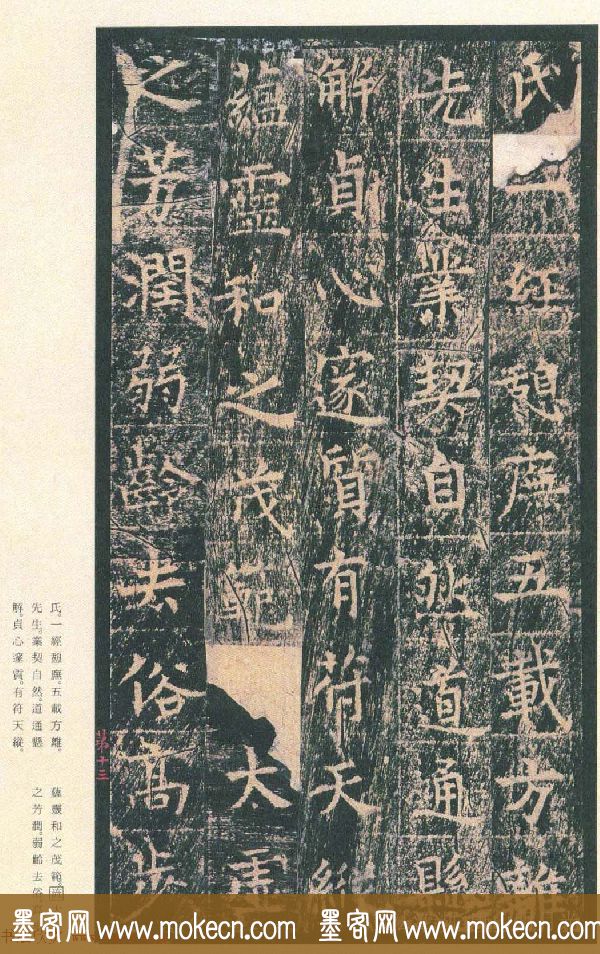 氏一經憩廡五載方離
先生業契自然道通縣
解貞心邃質有符天縱
蘊靈和之茂範太虛
之芳潤弱齡去俗高步
第十三
氏。一經憩廡。五載方離。
先生。業契自然。道通懸
解。貞心邃質。有符天縱。
蘊靈和之茂範
之芳潤。弱齡去俗
墨客网 www.mokecn.com 墨客网 www.mokecn.com